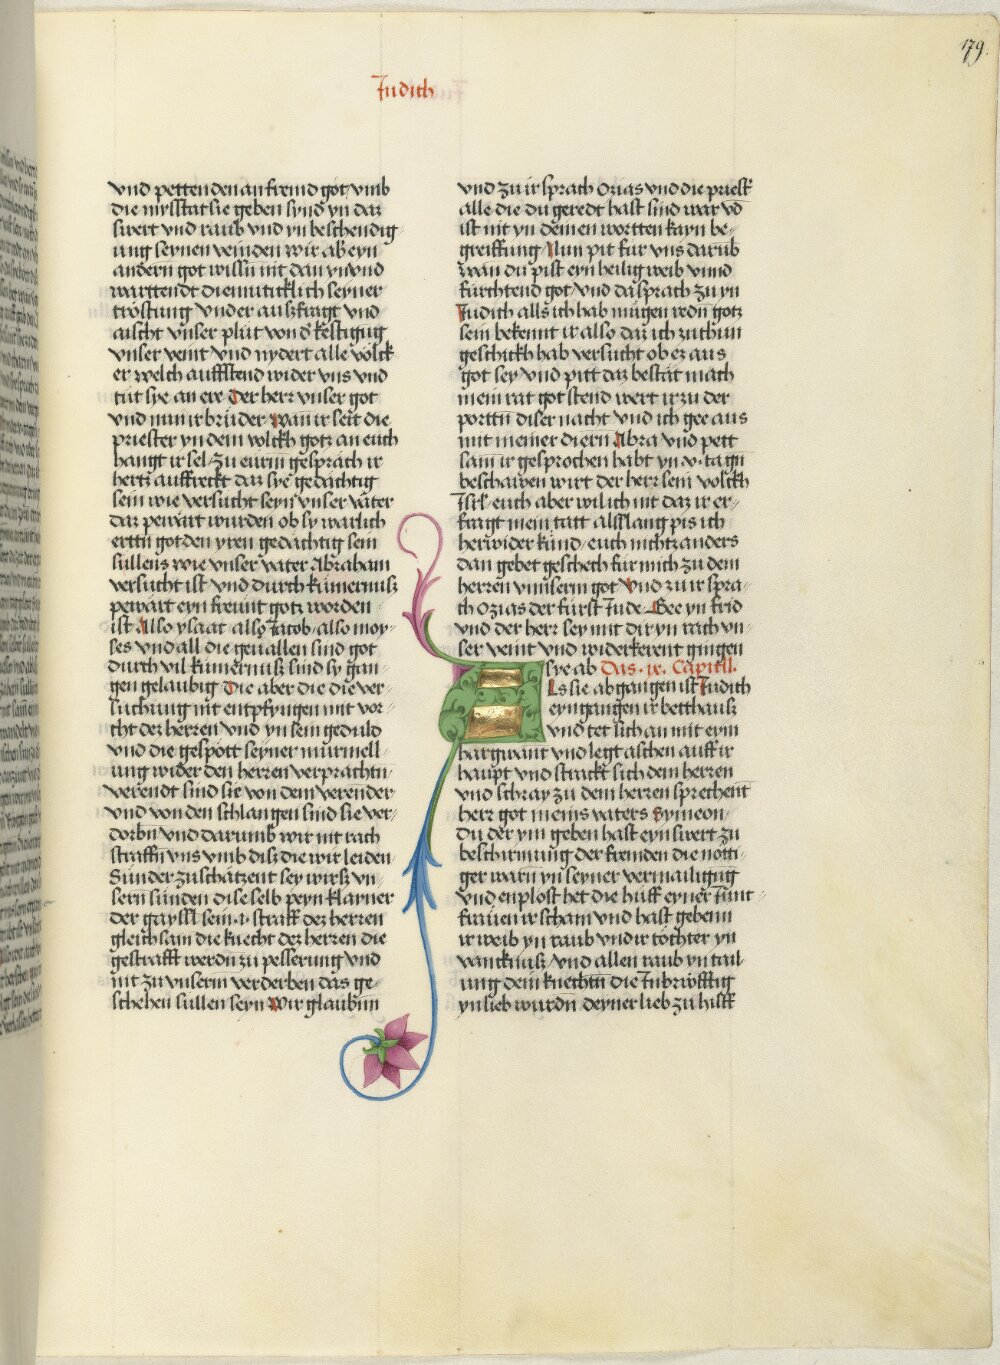 179.
Judith
vnd pettenden an fremd got vmb
die mysstat sie geben synd yn daz
swert vnd raub vnd yn beschendig-
ung seynen veinden wir aber eyn
andern got wissn nit dan yn vnd
warttendt diemuticklich seyner
tröstung vnd er auszfragt vnd
aischt vnser plut von d' kestigug
vnser veint vnd nydert alle völck-
er welch auffstend wider vns vnd
tüt sye an ere Der herr vnser got
vnd nun ir brüder Wan ir seit die
priester yn dem volckh gotz an euch
hangt ir sel zu eurm gespräch ir
hertz auffreckt daz sye gedachtig
sein wie versucht seyn vnser väter
daz pewärt wurden ob sy warlich
erttn got den yren gedachtig sein
süllens wie vnser vater Abraham
versucht ist vnd durch kümernusz
pewärt eyn freunt gotz worden
ist Also ysaac also Jacob also moy-
ses vnd all die geuallen sind got
durch vil kümernusz sind sy gan-
gen gelaubig Die aber die die ver-
suchung nit entpfyngen mit vor-
cht dez herren vnd yn sein geduld
vnd die gespött seyner mürmell-
ung wider den herren verprachtn
verendt sind sie von dem verender
vnd von den schlangen sind sie ver-
dorbn vnd darumb wir nit rach
straffn vns vmb disz die wir leiden
Sünder zuschätzent sey wirsz vn-
sern sünden dise selb peyn klayner
der gayssl sein .1. straff dez herren
gleichsam die knecht dez herren die
gestrafft werdn zu pesserung vnd
nit zu vnserm verderben das ge-
schehen süllen seyn Wir glaubnn
vnd zu ir sprach Ozias vnd die priest'
alle die du geredt hast sind war vd
ist nit yn deinen wortten kayn be-
greiffung Nun pit für vns darüb
wan du pist eyn heilig weib vnnd
fürchtend got vnd da sprach zu yn
Judith alls ich hab mügen redn gotz
sein bekennt ir also daz ich zuthun
geschickh hab versucht ob ez aus
got sey vnd pitt daz bestät mach
mein rat got stend wert ir zu der
porttn diser nacht vnd ich gee aus
mit meiner diern Abra vnd pett
sam ir gesprochen habt yn .v. tagn
beschawen wirt der herr sein volckh
Jsrl' euch aber wil ich nit daz ir er-
fragt mein tatt alsslang pis ich
herwider künd euch nichtz anders
dan gebet geschech für mich zu dem
herren vnnserm got Vnd zu ir spra-
ch Ozias der fürst Jude Gee yn frid
vnd der herr sey mit dir yn rach vn-
ser veint vnd widerkerent giengen
sye ab Das .ix. Capitll.
Als sie abgangen ist Judith
eyngangen ir betthausz
vnd tet sich an mit eym
hargwant vnd legt aschen auff ir
haupt vnd strackt sich dem herren
vnd schray zu dem herren sprechent
herr got meins vaters Symeon
du der ym geben hast eyn swert zu
beschirmung der fremden die nötti-
ger warn yn seyner vermailigug
vnd enplöst het die huff eyner junk-
frauen ir scham vnd hast gebenn
ir weib yn raub vnd ir töchter yn
vancknusz vnd allen raub yn tail-
ung dein knechtn die Jnbrünstig
yn lieb wurdn deyner lieb zu hilff